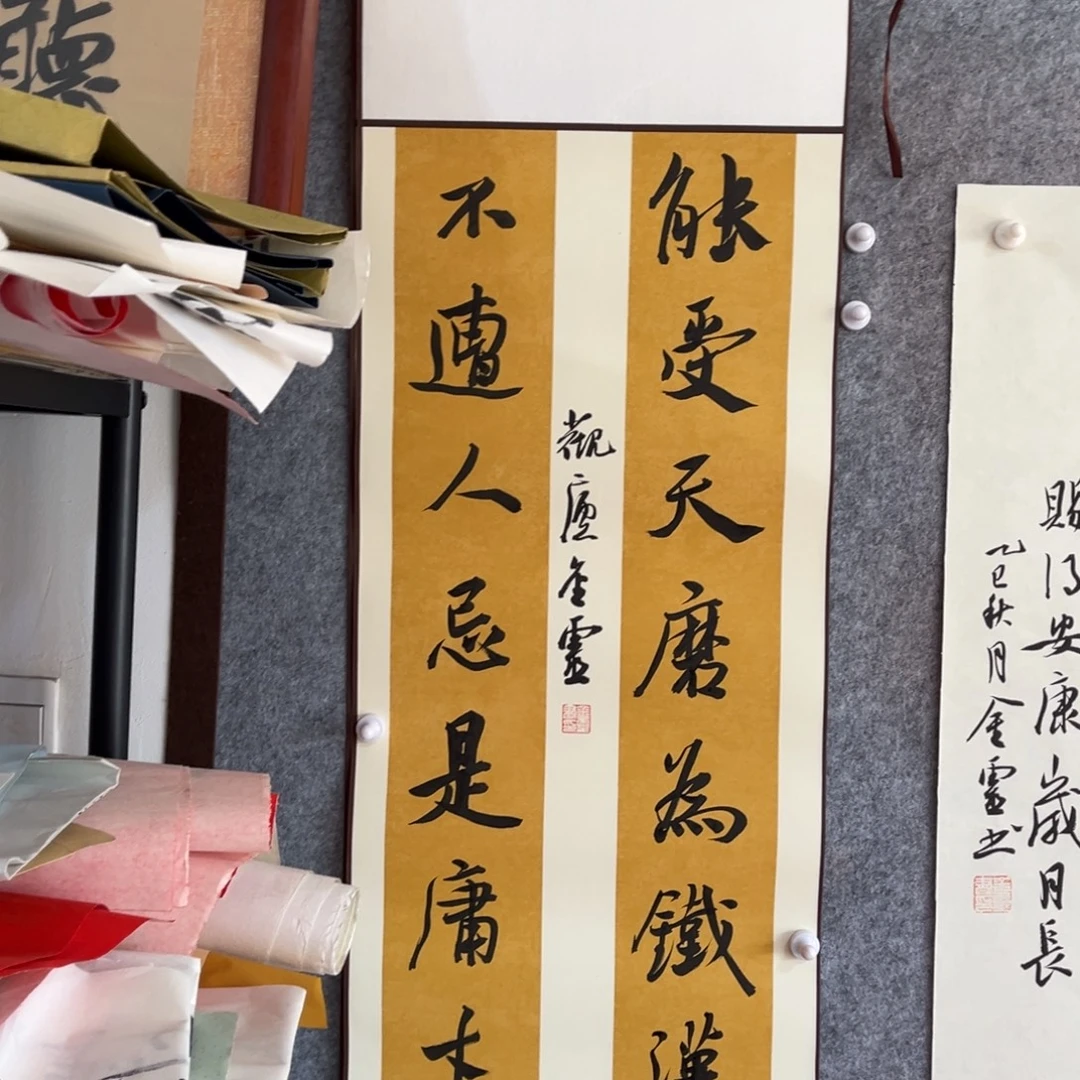 賜得安康歲月長
乙巳秋月金靈书
能受天磨為鐵漢
觀廬金靈
不遭人忌是庸才
聽